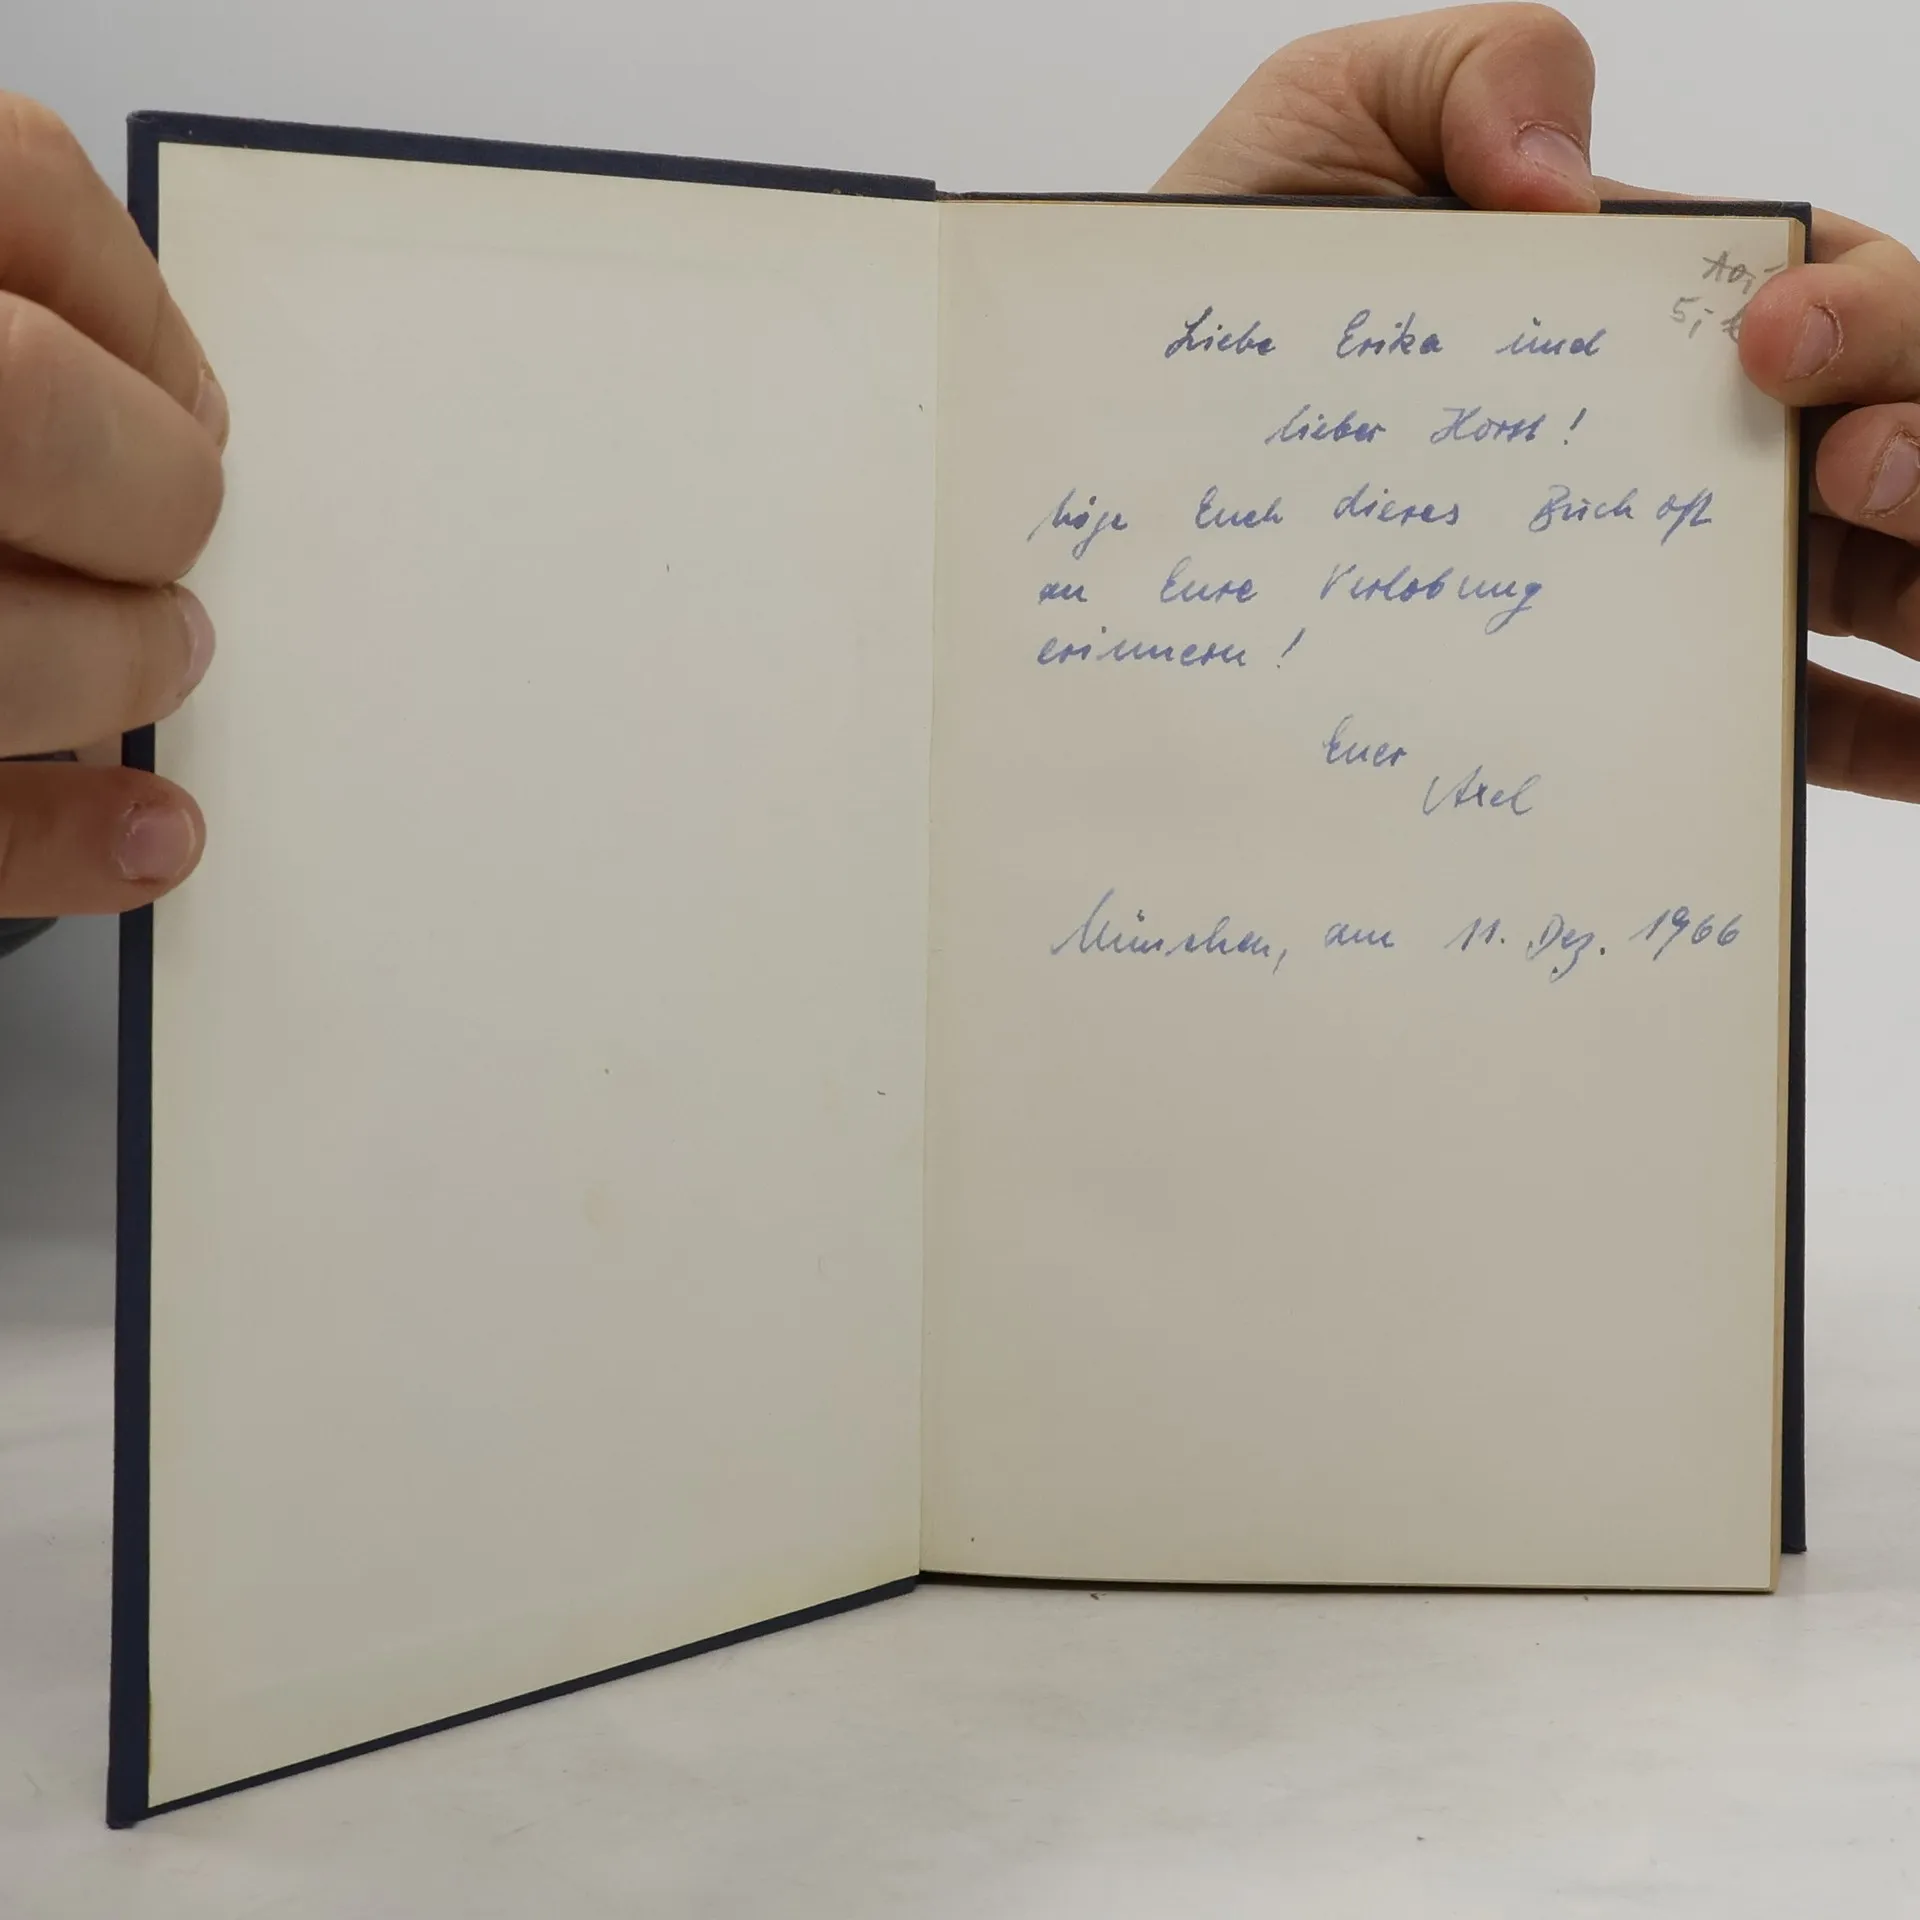 10,-
5,-
Liebe Erika und
lieber Horst!
Möge Euch dieses Buch oft
an Eure Verlobung
erinnern!
Euer
Axel
München, am 11. Dez. 1966